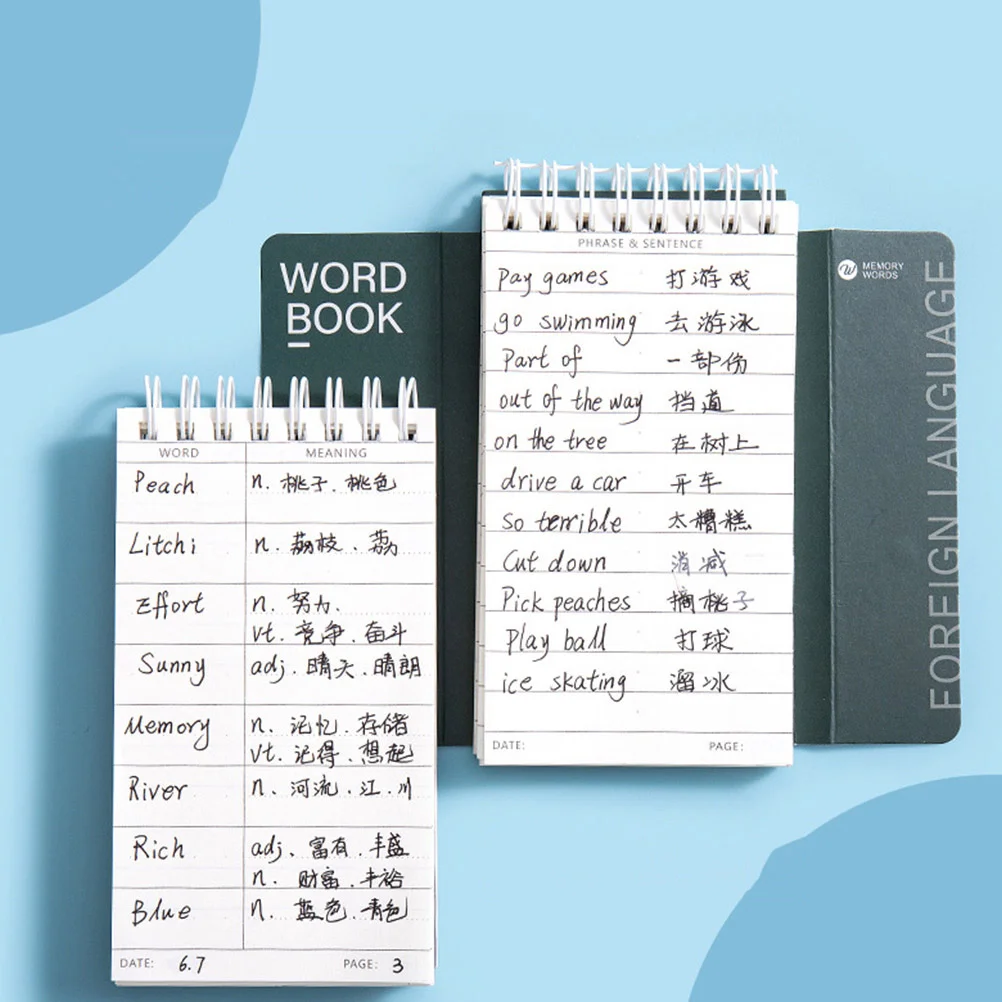 WORD
BOOK
MEMORY
WORDS
FOREIGN LANGUAGE
PHRASE & SENTENCE
Pay games 打游戏
go swimming 去游泳
Part of 一部伤
out of the way 挡道
on the tree 在树上
drive a car 开车
So terrible 太糟糕
Cut down 消减
Pick peaches 摘桃子
Play ball 打球
ice skating 溜冰
DATE: PAGE:
WORD MEANING
Peach n. 桃子、桃色
Litchi n. 荔枝、荔
Effort n. 努力.
vt. 竞争、奋斗
Sunny adj. 晴天.晴朗
Memory n. 记忆、存储
vt. 记得.想起
River n. 河流.江.川
Rich adj、富有.丰盛
n. 财富.丰裕
Blue n. 蓝色.青色
DATE: 6.7 PAGE: 3